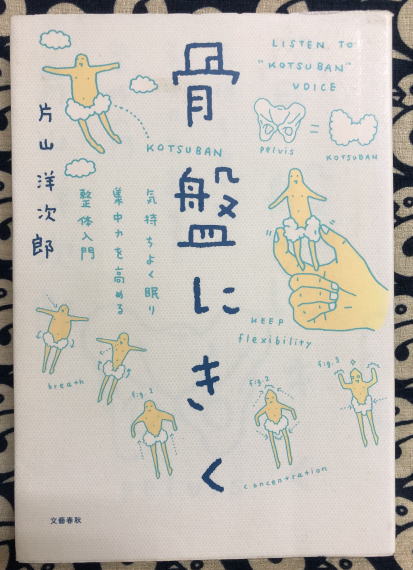 骨盤にきく
片山洋次郎
気持ちよく眠り
集中力を高める
整体入門
LISTEN TO
"KOTSUBAN"
VOICE
pelvis
=
KOTSUBAN
KOTSUBAN
KEEP
flexibility
breath
fig. 1
fig. 2
fig. 3
concentration
文藝春秋